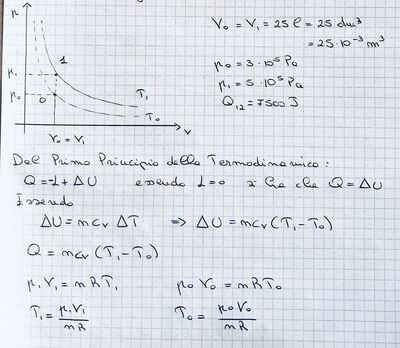 p
V₀ = V₁ = 25 ℓ = 25 dm³
= 25·10⁻³ m³
p₀ = 3·10⁵ Pa
p₁ = 5·10⁵ Pa
Q₁₂ = 7500 J
1
p₁
p₀
0
T₁
T₀
V₀ = V₁
V
Dal Primo Principio della Termodinamica:
Q = L + ΔU essendo L = 0 si ha che Q = ΔU
Essendo
ΔU = m cv ΔT ⇒ ΔU = m cv (T₁ - T₀)
Q = m cv (T₁ - T₀)
p₁ V₁ = m R T₁ p₀ V₀ = m R T₀
T₁ = p₁V₁ / mR T₀ = p₀V₀ / mR